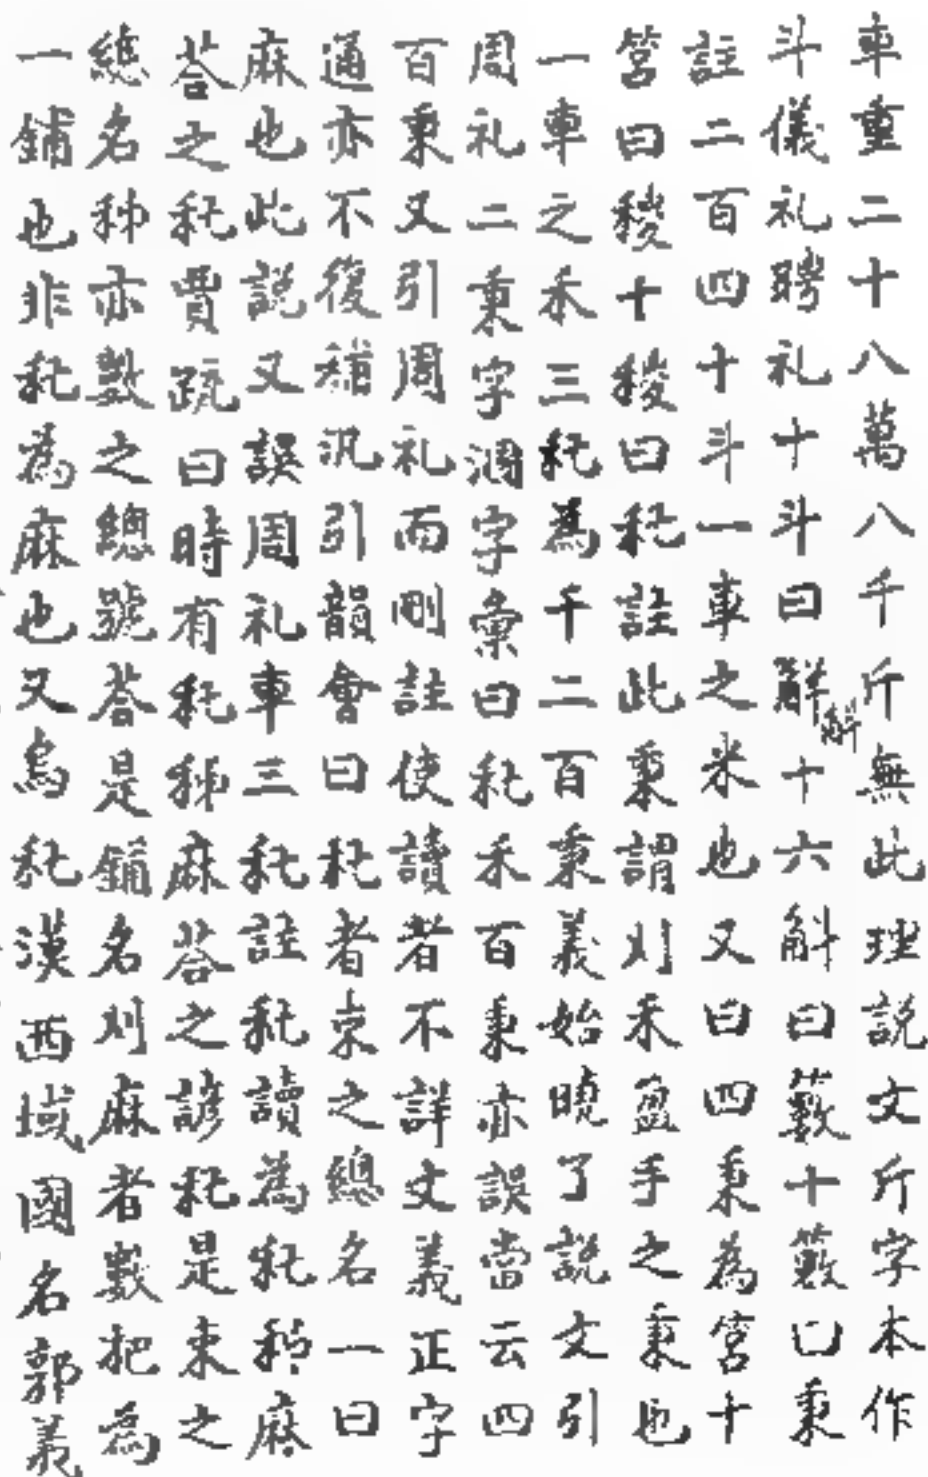 車重二十八萬八千斤無此理説文斤字本作
斗儀礼聘礼十斗曰斛十六斛曰籔十籔曰秉
註二百四十斗一車之米也又曰四秉為筥十
筥曰稯十稯曰秅註此秉謂刈禾盈手之秉也
一車之禾三秅為千二百秉義始曉了説文引
周礼二秉字淍字彙曰秅禾百秉亦誤當云四
百秉又引周礼而刪註使讀者不詳文義正字
通亦不復稱汎引韻會曰秅者束之總名一曰
麻也此説又誤周礼車三秅註秅讀為秅秭麻
荅之秅賈疏曰時有秅秭麻荅之諺秅是束之
總名秭亦數之總號荅是鋪名刈麻者數把為
一鋪也非秅為麻也又烏秅漢西域國名郭義